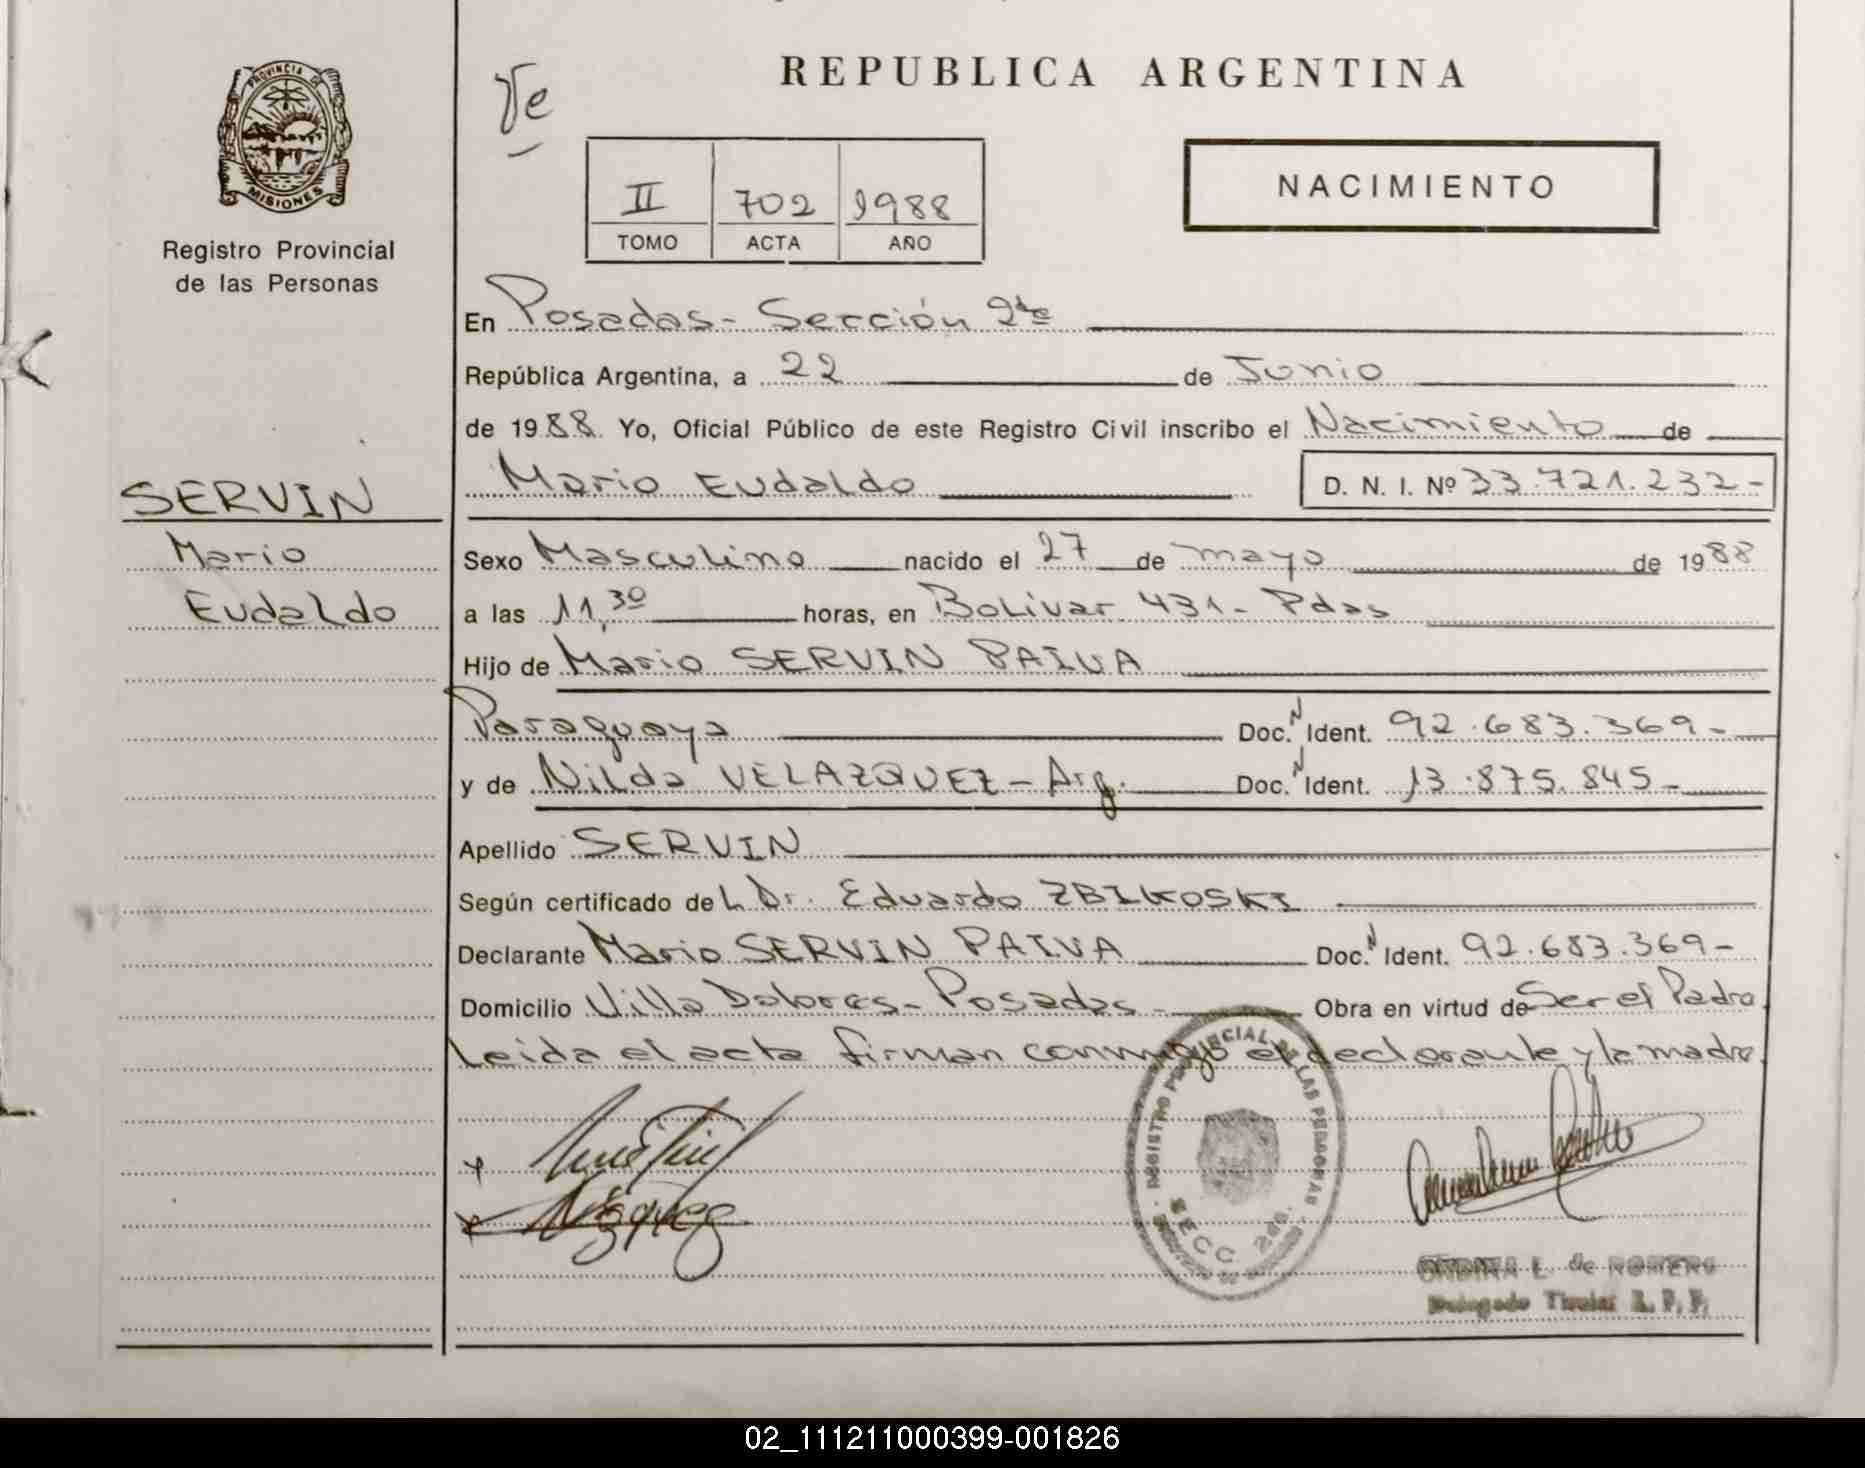 REPUBLICA ARGENTINA
PROVINCIA DE
MISIONES
Registro Provincial
de las Personas
II 702 1988
TOMO ACTA AÑO
NACIMIENTO
En Posadas - Sección 2da
República Argentina, a 22 de Junio
de 1988 Yo, Oficial Público de este Registro Civil inscribo el Nacimiento de
Mario Eudaldo D. N. I. Nº 33.721.232-
SERVIN
Mario
Eudaldo
Sexo Masculino nacido el 27 de mayo de 1988
a las 11,30 horas, en Bolivar 431 - Pdas
Hijo de Mario SERVIN PAIVA
Paraguaya Doc. N Ident. 92.683.369-
y de Nilda VELAZQUEZ - Arg. Doc. N Ident. 13.875.845-
Apellido SERVIN
Según certificado del Dr. Eduardo ZBIKOSKI
Declarante Mario SERVIN PAIVA Doc. N Ident. 92.683.369-
Domicilio Villa Dolores - Posadas - Obra en virtud de Ser el Padre
Leida el acta firman conmigo el declarante y la madre.
REGISTRO PROVINCIAL DE LAS PERSONAS
SECC. 2da.
ONDINA L. de ROMERO
Delegado Titular R. P. P.
02_111211000399-001826